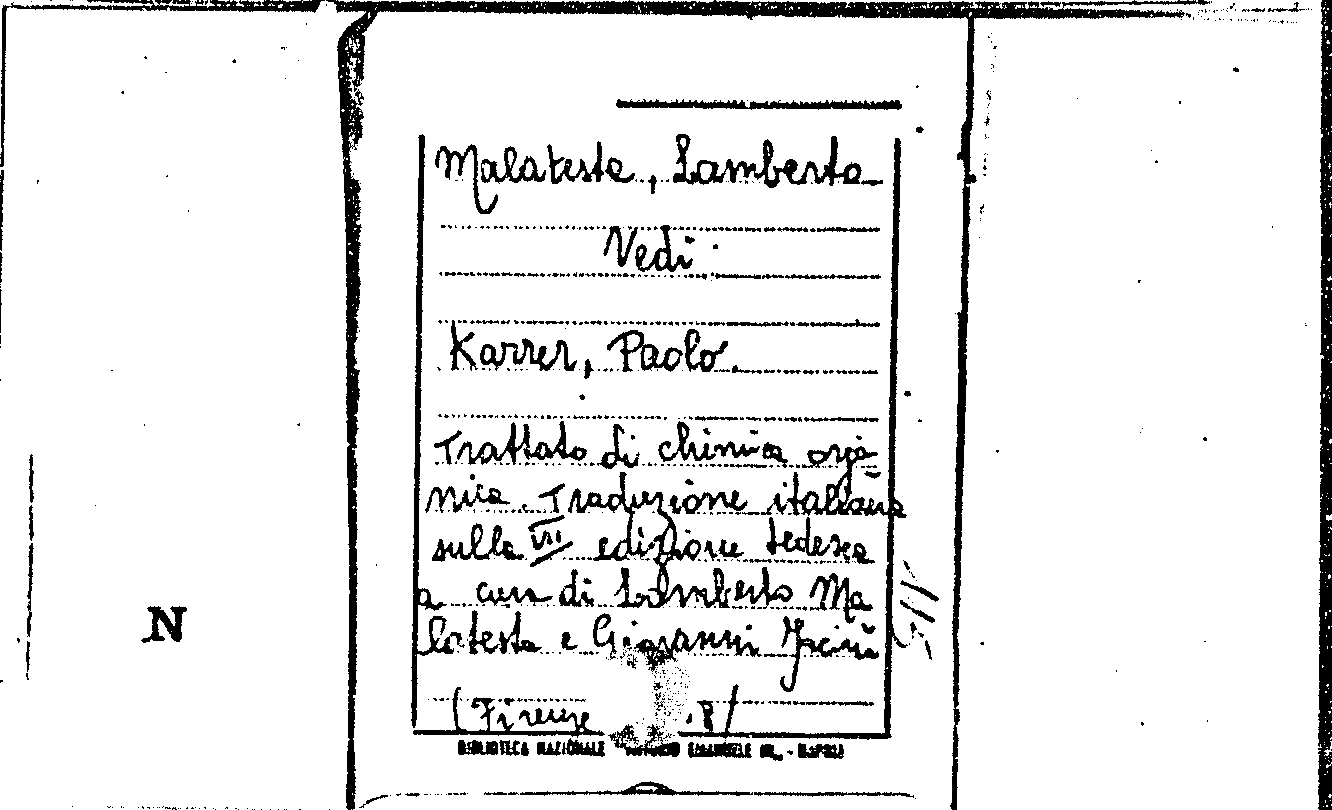 Malatesta, Lamberto
Vedi
Karrer, Paolo.
Trattato di chimica orga-
nica. Traduzione italiana
sulla VII edizione tedesca
a cura di Lamberto Ma
latesta e Giovanni
(Firenze
N
BIBLIOTECA NAZIONALE VITTORIO EMANUELE III. - NAPOLI